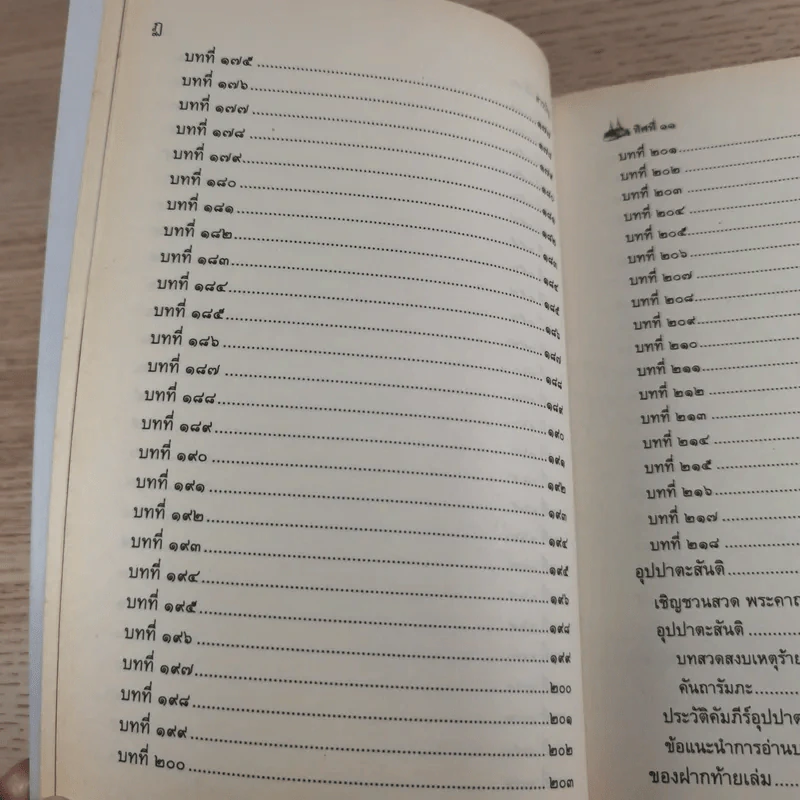 ฏ
บทที่ ๑๗๕ ........
บทที่ ๑๗๖ ........
บทที่ ๑๗๗ ........
บทที่ ๑๗๘ ........ ๑๘๐
บทที่ ๑๗๙ ........ ๑๘๑
บทที่ ๑๘๐ ........ ๑๘๒
บทที่ ๑๘๑ ........ ๑๘๓
บทที่ ๑๘๒ ........ ๑๘๔
บทที่ ๑๘๓ ........ ๑๘๕
บทที่ ๑๘๔ ........ ๑๘๖
บทที่ ๑๘๕ ........ ๑๘๗
บทที่ ๑๘๖ ........ ๑๘๘
บทที่ ๑๘๗ ........ ๑๘๙
บทที่ ๑๘๘ ........ ๑๙๐
บทที่ ๑๘๙ ........ ๑๙๑
บทที่ ๑๙๐ ........ ๑๙๒
บทที่ ๑๙๑ ........ ๑๙๓
บทที่ ๑๙๒ ........ ๑๙๔
บทที่ ๑๙๓ ........ ๑๙๕
บทที่ ๑๙๔ ........ ๑๙๖
บทที่ ๑๙๕ ........ ๑๙๘
บทที่ ๑๙๖ ........ ๑๙๙
บทที่ ๑๙๗ ........ ๒๐๐
บทที่ ๑๙๘ ........ ๒๐๑
บทที่ ๑๙๙ ........ ๒๐๒
บทที่ ๒๐๐ ........ ๒๐๓
ทิศที่ ๑๑
บทที่ ๒๐๑ ........
บทที่ ๒๐๒ ........
บทที่ ๒๐๓ ........
บทที่ ๒๐๔ ........
บทที่ ๒๐๕ ........
บทที่ ๒๐๖ ........
บทที่ ๒๐๗ ........
บทที่ ๒๐๘ ........
บทที่ ๒๐๙ ........
บทที่ ๒๑๐ ........
บทที่ ๒๑๑ ........
บทที่ ๒๑๒ ........
บทที่ ๒๑๓ ........
บทที่ ๒๑๔ ........
บทที่ ๒๑๕ ........
บทที่ ๒๑๖ ........
บทที่ ๒๑๗ ........
บทที่ ๒๑๘ ........
อุปปาตะสันติ ........
เชิญชวนสวด พระคาถ
อุปปาตะสันติ ........
บทสวดสงบเหตุร้าย
คันถารัมภะ ........
ประวัติคัมภีร์อุปปาต
ข้อแนะนำการอ่านบ
ของฝากท้ายเล่ม ........